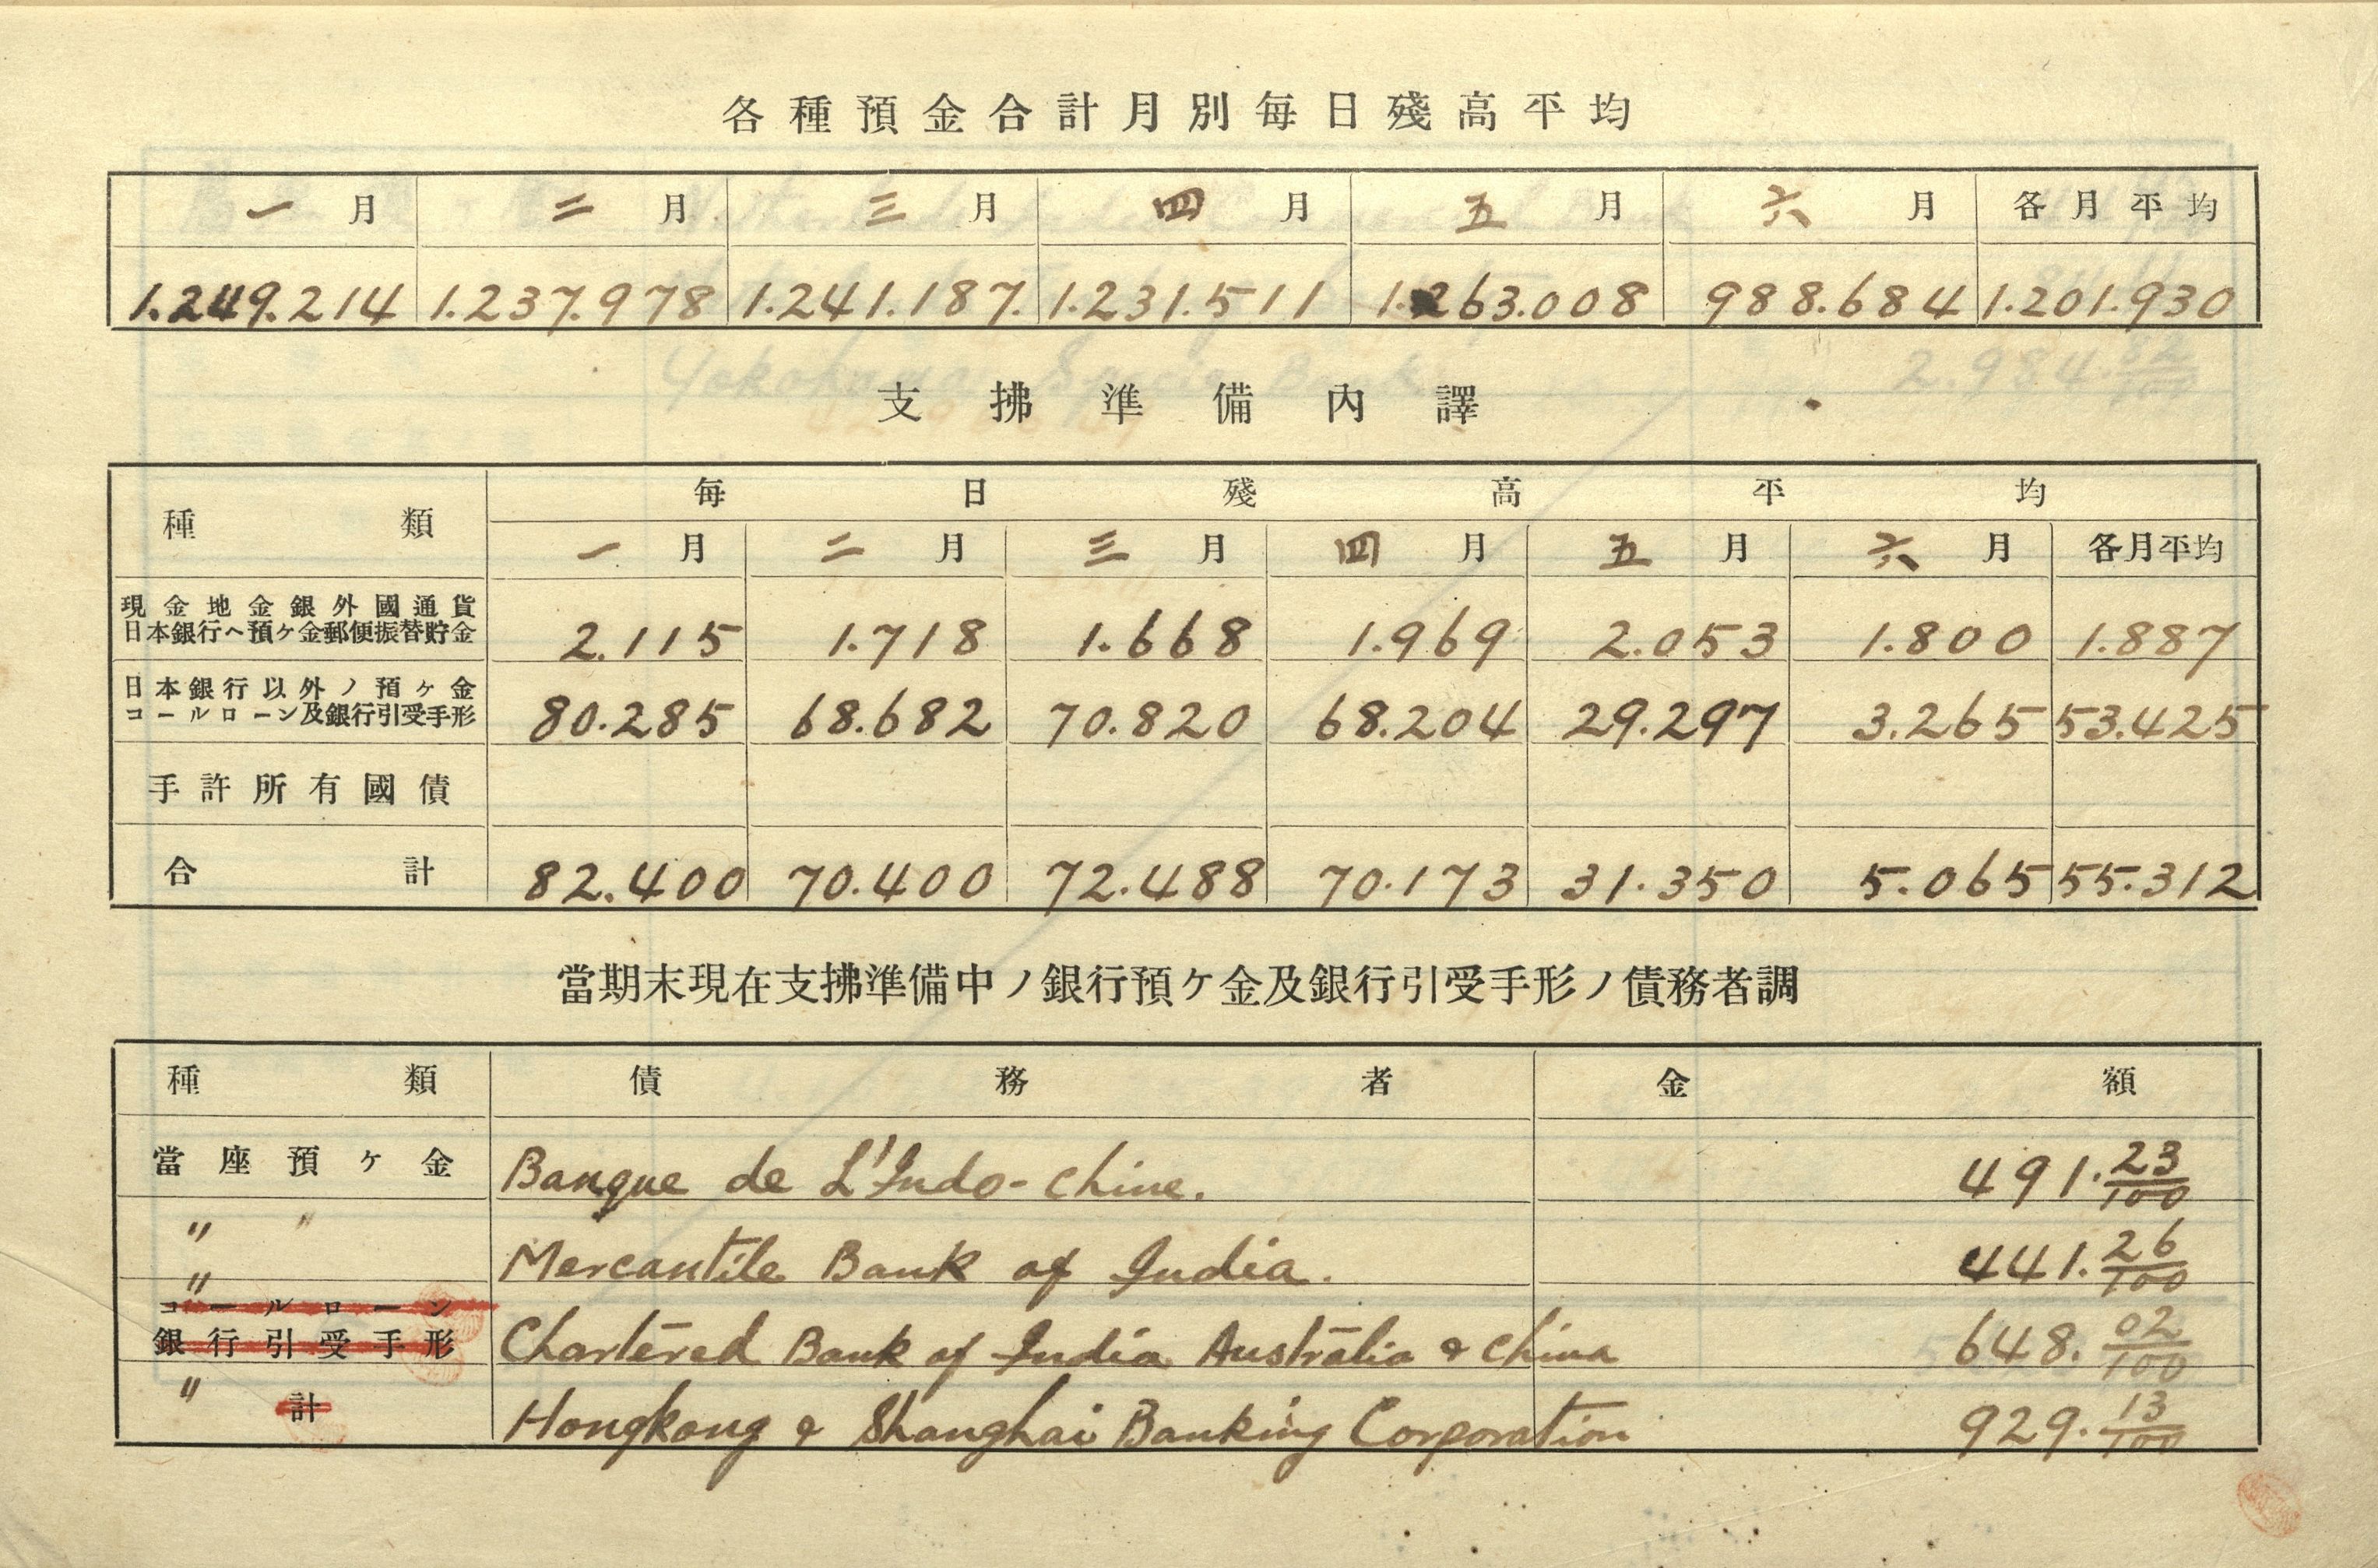 各種預金合計月別每日殘高平均
一月 二月 三月 四月 五月 六月 各月平均
1.249.214 1.237.978 1.241.187. 1.231.511 1.263.008 988.684 1.201.930
支拂準備內譯
種類 每日殘高平均
一月 二月 三月 四月 五月 六月 各月平均
現金地金銀外國通貨
日本銀行ヘ預ヶ金郵便振替貯金 2.115 1.718 1.668 1.969 2.053 1.800 1.887
日本銀行以外ノ預ヶ金
コールローン及銀行引受手形 80.285 68.682 70.820 68.204 29.297 3.265 53.425
手許所有國債
合計 82.400 70.400 72.488 70.173 31.350 5.065 55.312
當期末現在支拂準備中ノ銀行預ケ金及銀行引受手形ノ債務者調
種類 債務者 金額
當座預ヶ金 Banque de L'Indo-chine. 491.23/100
〃 〃 Mercantile Bank of India. 441.26/100
〃
コールローン
銀行引受手形 Chartered Bank of India Australia & China 648.02/100
〃 計 Hongkong & Shanghai Banking Corporation 929.13/100